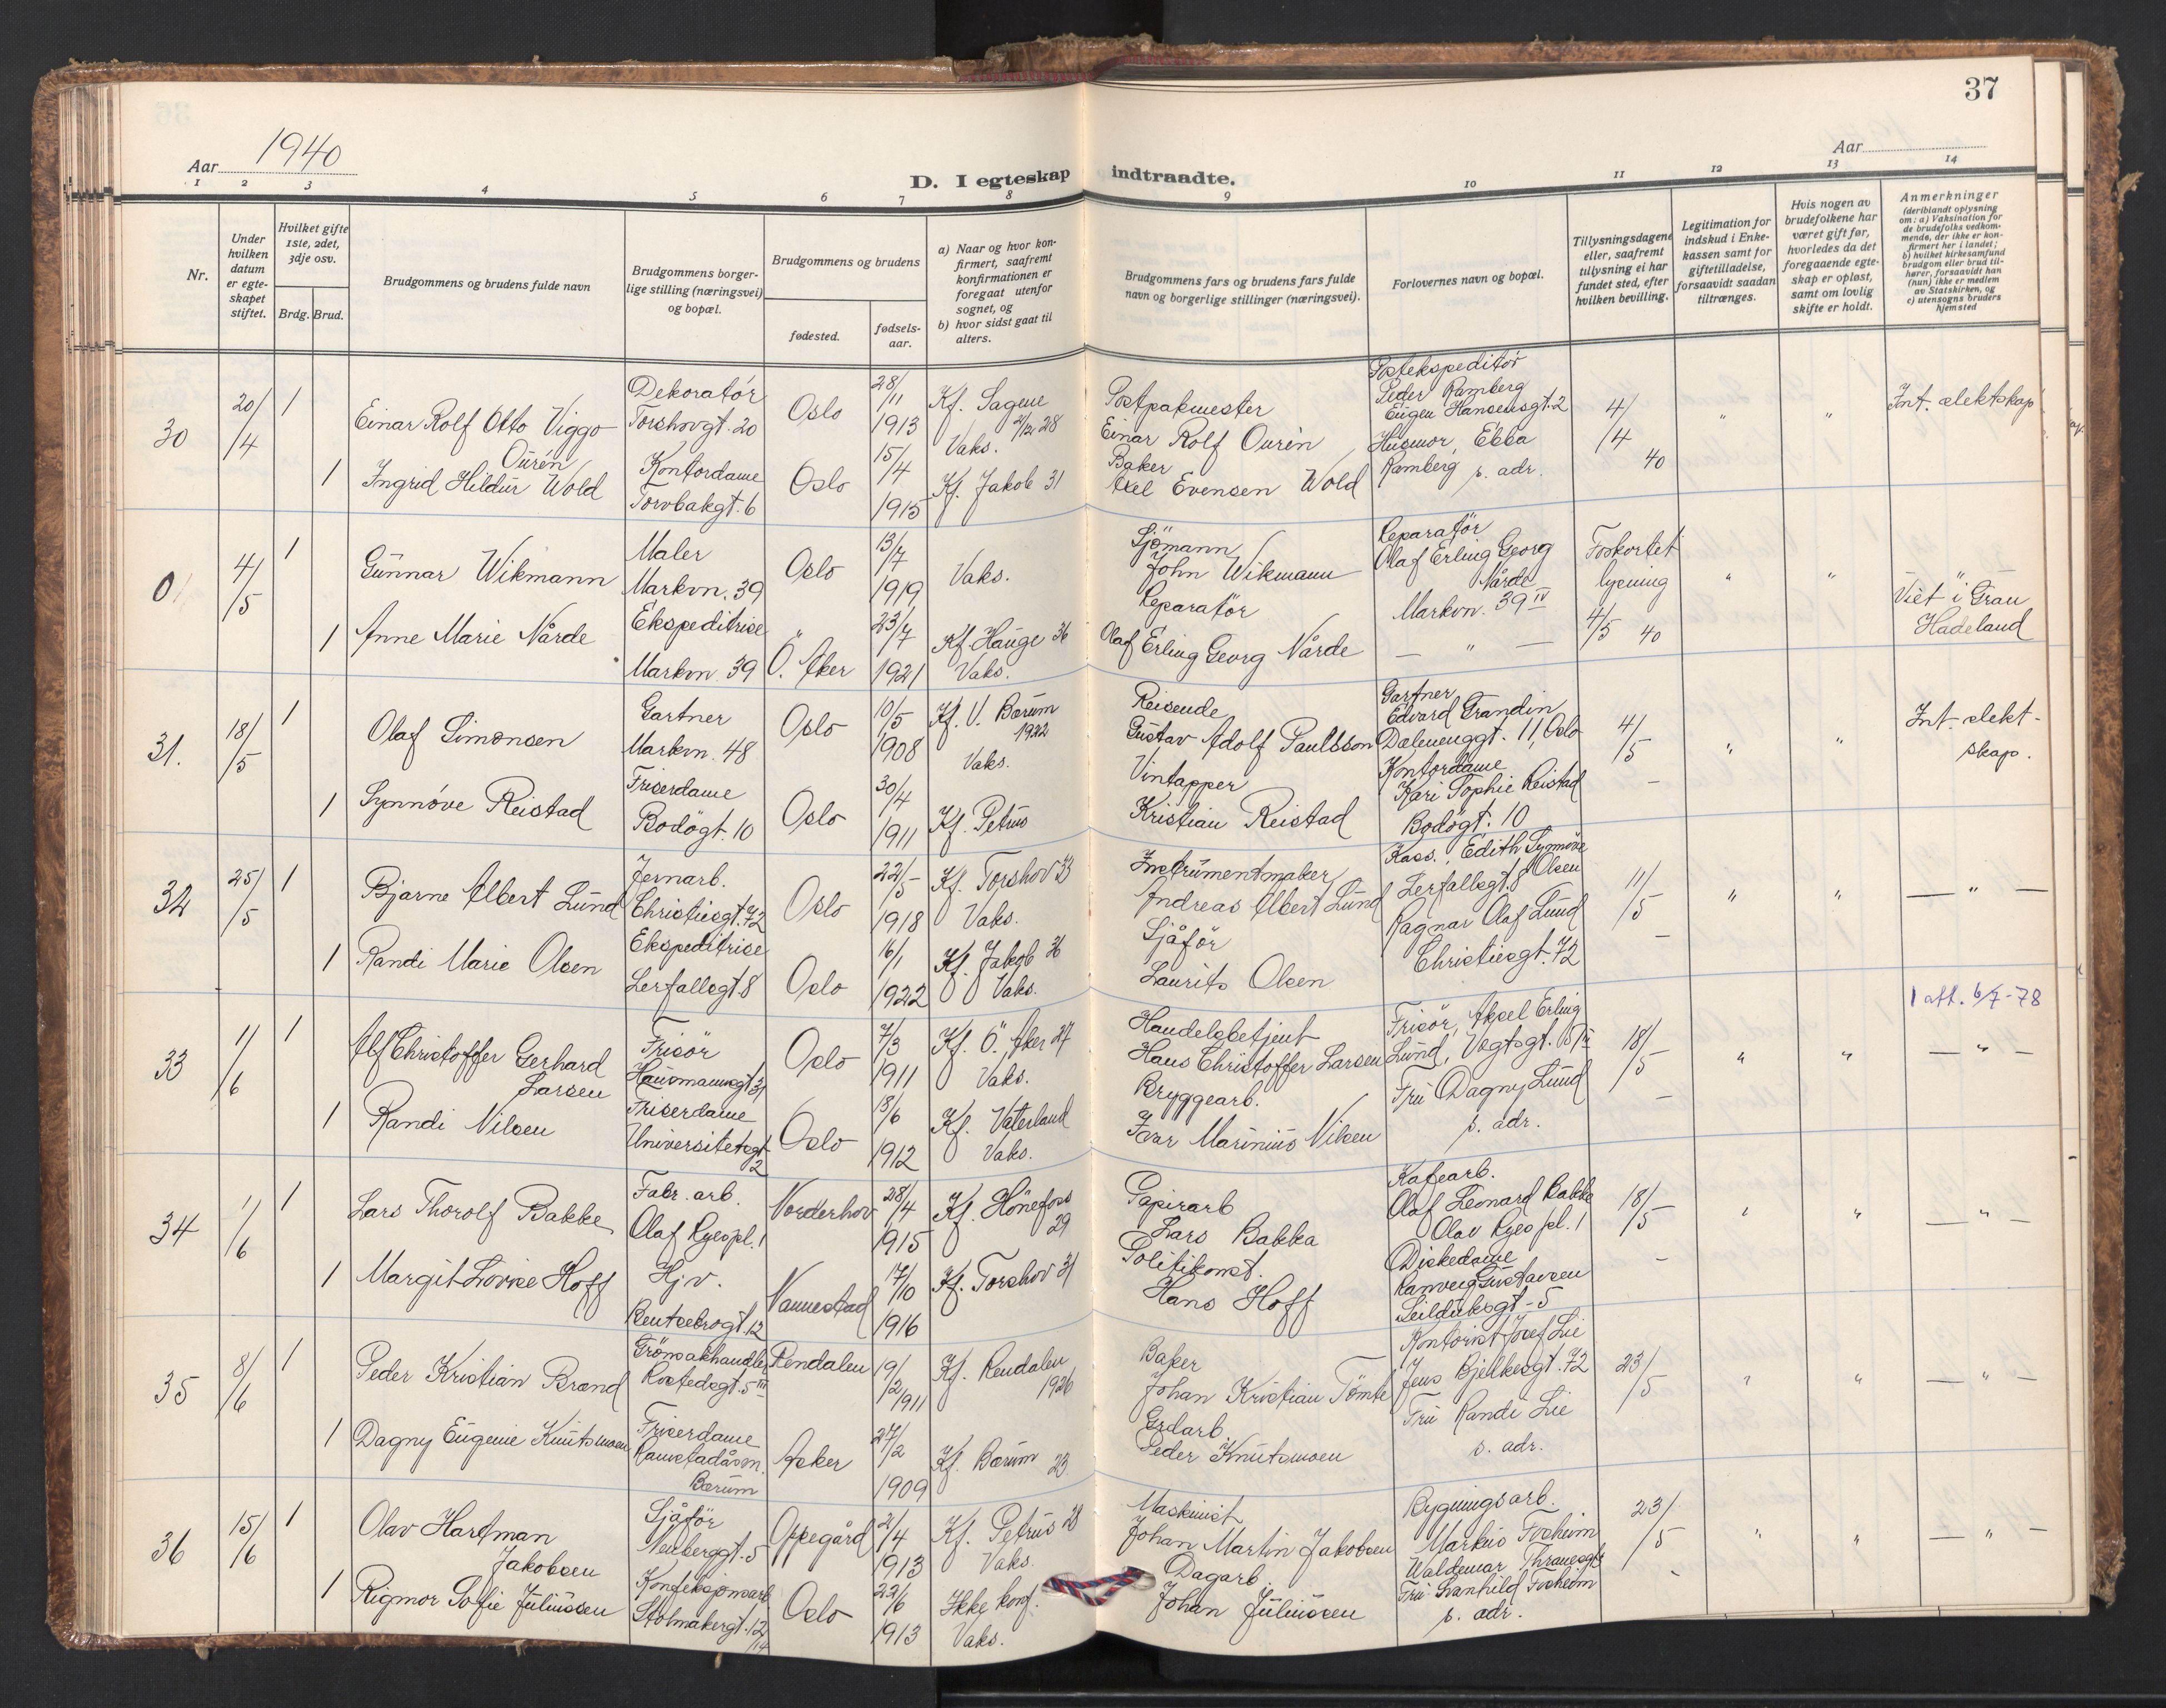 37
Aar 1940
Aar
D. I egteskap indtraadte.
1 2 3 4 5 6 7 8 9 10 11 12 13 14
Nr.
Under hvilken datum er egteskapet stiftet.
Hvilket gifte 1ste, 2det, 3dje osv.
Brdg. Brud.
Brudgommens og brudens fulde navn
Brudgommens borgerlige stilling (næringsvei) og bopæl.
Brudgommens og brudens
fødested.
fødselsaar.
a) Naar og hvor konfirmert, saafremt konfirmationen er foregaat utenfor sognet, og
b) hvor sidst gaat til alters.
Brudgommens fars og brudens fars fulde navn og borgerlige stillinger (næringsvei).
Forlovernes navn og bopæl.
Tillysningsdagene eller, saafremt tillysning ei har fundet sted, efter hvilken bevilling.
Legitimation for indskud i Enkekassen samt for giftetilladelse, forsaavidt saadan tiltrænges.
Hvis nogen av brudefolkene har været gift før, hvorledes da det foregaaende egteskap er opløst, samt om lovlig skifte er holdt.
Anmerkninger
(deriblandt oplysning om: a) Vaksination for de brudefolks vedkommende, der ikke er konfirmert her i landet; b) hvilket kirkesamfund brudgom eller brud tilhører, forsaavidt han (hun) ikke er medlem av Statskirken, og c) utensogns bruders hjemsted
30 20/4 1 Einar Rolf Otto Viggo Ourén Dekoratør Torshovgt. 20 Oslo 28/11 1913 Kf. Sagene 2/12 28 Vaks. Postpakmester Einar Rolf Ourén Postekspeditør Peder Ramberg Eugen Hansensgt. 2 4/4 40 " " Int. slektskap
1 Ingrid Hildur Wold Kontordame Torvbakgt. 6 Oslo 15/4 1915 Kf. Jakob 31 Baker Axel Evensen Wold Husmor, Ebba Ramberg s. adr.
0 4/5 1 Gunnar Wikmann Maler Markvn. 39 Oslo 13/7 1919 Vaks. Sjömann John Wikmann Reparatør Olaf Erling Georg Nårde Markvn. 39 IV Forkortet lysning 4/5 40 " " " Viet i Gran Hadeland
1 Anne Marie Nårde Ekspeditrise Markvn. 39 Ö. Aker 23/7 1921 Kf. Hauge 36 Vaks. Reparatør Olaf Erling Georg Nårde — " —
31. 18/5 1 Olaf Simonsen Gartner Markvn. 48 Oslo 10/5 1908 Kf. V. Bærum 1922 Vaks. Reisende Gustav Adolf Paulsson Gartner Edvard Grandin Dælenenggt. 11, Oslo 4/5 — " " Int. slektskap.
1 Synnøve Reistad Friserdame Bodøgt. 10 Oslo 30/4 1911 Kf. Petrus Vintapper Kristian Reistad Kontordame Kari Sophie Reistad Bodøgt. 10
32 25/5 1 Bjarne Albert Lund Jernarb. Christiesgt. 72 Oslo 22/5 1918 Kf. Torshov 33 Vaks. Instrumentmaker Andreas Albert Lund Kass., Edith Synnøve Olsen Lerfallsgt. 8 11/5 — " " — " —
1 Randi Marie Olsen Ekspeditrise Lerfallsgt. 8 Oslo 16/1 1922 Kf. Jakob 36 Vaks. Sjåför Laurits Olsen Ragnar Olaf Lund Christiesgt. 72
33 1/6 1 Alf Christoffer Gerhard Larsen Frisör Hausmannsgt. 31 Oslo 7/3 1911 Kf. Ö. Aker 27 Vaks. Handelsbetjent Hans Christoffer Larsen Frisör, Aksel Erling Lund, Vogtsgt. 18/5 — " " — " — 1 att. 6/7-78
1 Randi Nilsen Friserdame Universitetsgt. 2 Oslo 18/6 1912 Kf. Vaterland Vaks. Bryggearb. Ivar Marinius Nilsen Fru Dagny Lund s. adr.
34 1/6 1 Lars Thorolf Bakke Fabr. arb. Olaf Ryespl. 1 Norderhov 28/4 1915 Kf. Hönefoss 29 Papirarb Lars Bakka Kafearb. Olaf Leonard Bakke Olav Ryes pl. 1 18/5 — " " — " —
1 Margit Lovise Hoff Hj. v. Bentsebrogt. 12 Nannestad 17/10 1916 Kf. Torshov 31 Politikonst. Hans Hoff Diskedame Ranveig Gustavsen Seilduksgt. 5
35 8/6 1 Peder Kristian Brænd Grönsakhandler Rostedsgt. 5 III Rendalen 19/2 1911 Kf. Rendalen 1926 Baker Johan Kristian Tömte Kontorist Josef Lie Jens Bjelkesgt. 72 23/5 " " — " —
1 Dagny Eugenie Knutsmoen Friserdame Ramstadåsvn. Bærum Asker 27/2 1909 Kf. Bærum 23 Grdarb. Peder Knutsmoen Fru Randi Lie s. adr.
36 15/6 1 Olav Hartman Jakobsen Sjåför Neuberggt. 5 Oppegård 2/4 1913 Kf. Petrus 28 Vaks. Maskinist Johan Martin Jakobsen Bygningsarb. Markus Fosheim Waldemar Thranesgt. 23/5 " " — " —
1 Rigmor Sofie Juliussen Konfeksjonsarb Stolmakergt. 12/14 Oslo 22/6 1913 Ikke konf. Vaks. Dagarb. Johan Juliussen Fru Svanhild Fosheim s. adr.